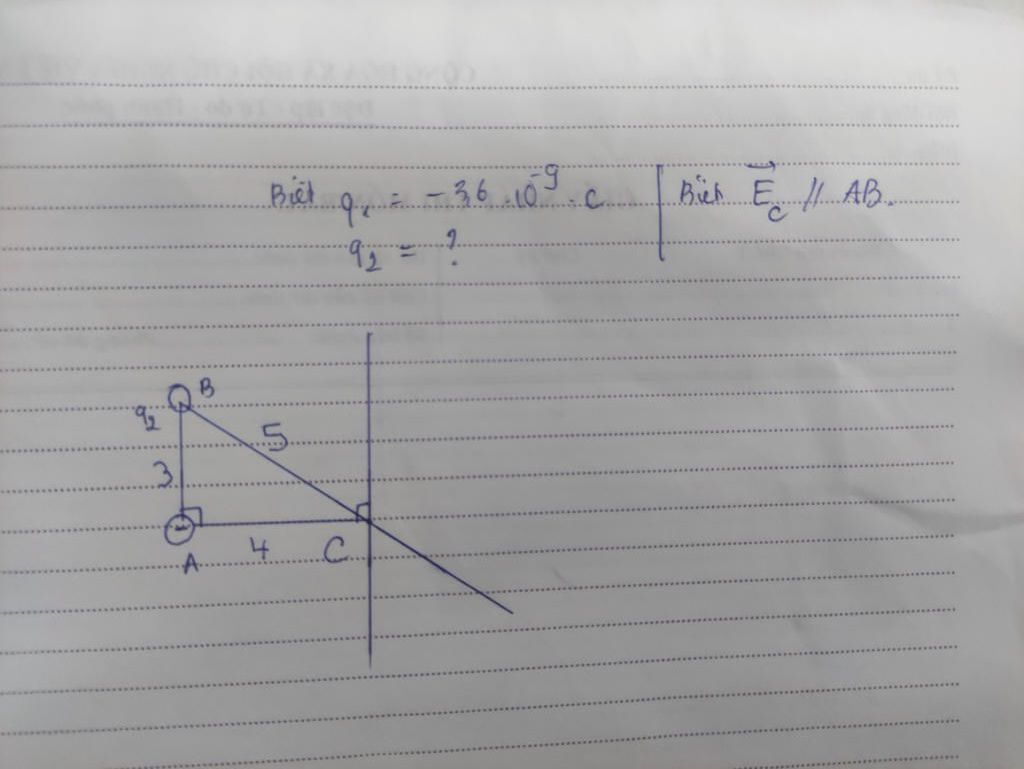 Biết q₁ = -3,6 .10⁻⁹ . C | Biết E⃗c // AB.
q₂ = ?
B
q₂
5
3
4
A
C